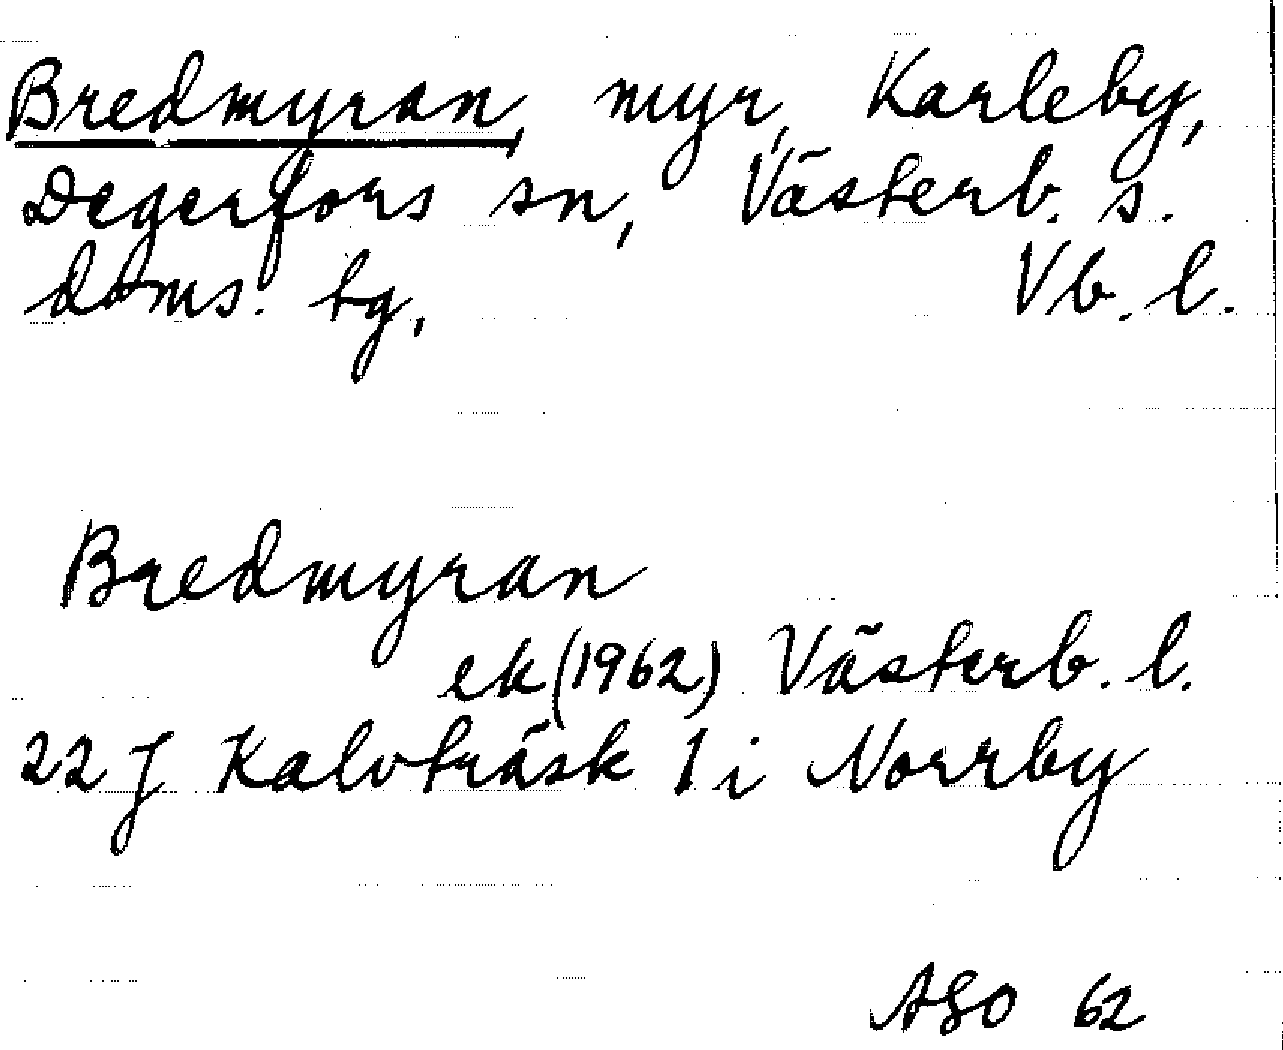 Bredmyran, myr, Karleby,
Degerfors sn, Västerb. s.
doms. tg, Vb. l.
Bredmyran
ek (1962) Västerb. l.
22 J Kalvträsk 1 i Norrby
62